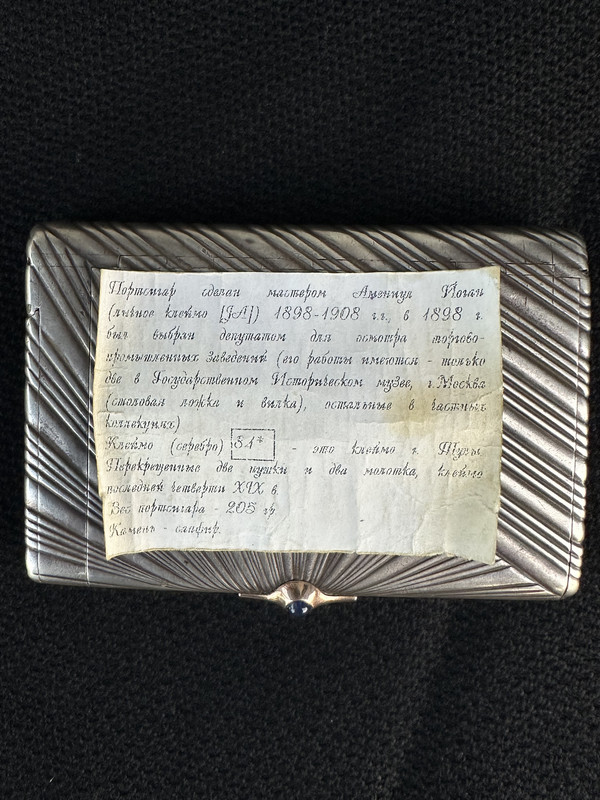 Портсигар сделан мастером Аменнул Йоган
(личное клеймо [JA]) 1898-1908 г.г., в 1898 г.
был выбран депутатом для осмотра торгово-
промышленных заведений (его работы имеются - только
две в Государственном Историческом музее, г.Москва
(столовая ложка и вилка), остальные в частных
коллекциях)
Клеймо (серебро) 84* это клеймо г. Тулы
Перекрещенные две пушки и два молотка, клеймо
последней четверти XIX в.
Вес портсигара - 205 гр.
Камень - сапфир.